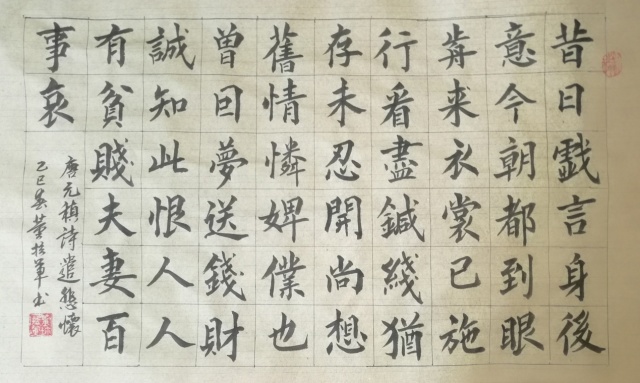 昔日戲言身後
意今朝都到眼
歬来衣裳已施
行看盡鍼綫猶
存未忍開尚想
舊情憐婢僕也
曾因夢送錢財
誠知此恨人人
有貧賤夫妻百
事哀
唐元稹詩遣悲懷
乙巳春董軍书